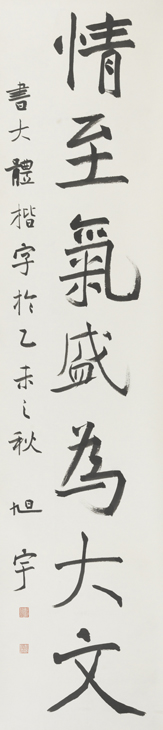 情至氣盛為大文
書大體楷字於乙未之秋 旭宇